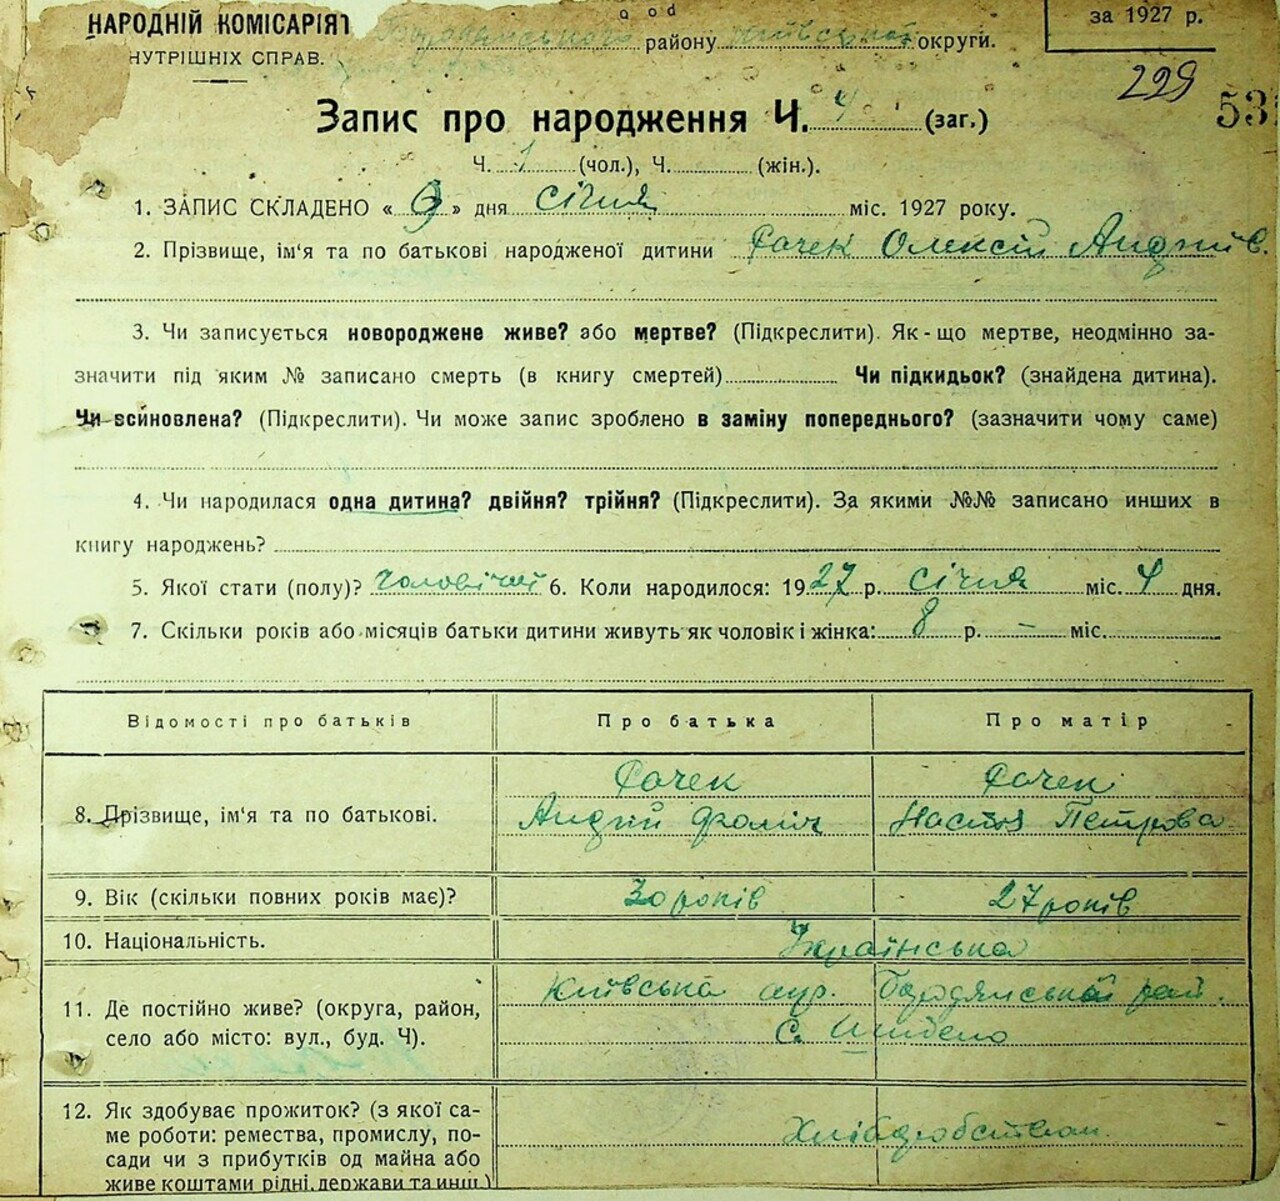 НАРОДНІЙ КОМІСАРІЯТ
ВНУТРІШНІХ СПРАВ.
району Київської округи.
за 1927 р.
229
53
Запис про народження Ч. 4 (заг.)
Ч. 1 (чол.), Ч. (жін.).
1. ЗАПИС СКЛАДЕНО « 9 » дня січня міс. 1927 року.
2. Прізвище, ім'я та по батькові народженої дитини Фачек Олексій Андріїв.
3. Чи записується новороджене живе? або мертве? (Підкреслити). Як-що мертве, неодмінно за-
значити під яким № записано смерть (в книгу смертей) Чи підкидьок? (знайдена дитина).
Чи всиновлена? (Підкреслити). Чи може запис зроблено в заміну попереднього? (зазначити чому саме)
4. Чи народилася одна дитина? двійня? трійня? (Підкреслити). За якими №№ записано инших в
книгу народжень?
5. Якої стати (полу)? чоловічої 6. Коли народилося: 1927 р. січня міс. 4 дня.
7. Скільки років або місяців батьки дитини живуть як чоловік і жінка: 8 р. – міс.
Відомості про батьків Про батька Про матір
8. Прізвище, ім'я та по батькові. Фачек Андрій Фоміч Фачек Настя Петрова
9. Вік (скільки повних років має)? 30 років 27 років
10. Національність. Українська
11. Де постійно живе? (округа, район, Київська окр. Бородянський рай.
село або місто: вул., буд. Ч). С.
12. Як здобуває прожиток? (з якої са-
ме роботи: ремества, промислу, по- Хліборобством
сади чи з прибутків од майна або
живе коштами рідні, держави та инш.)